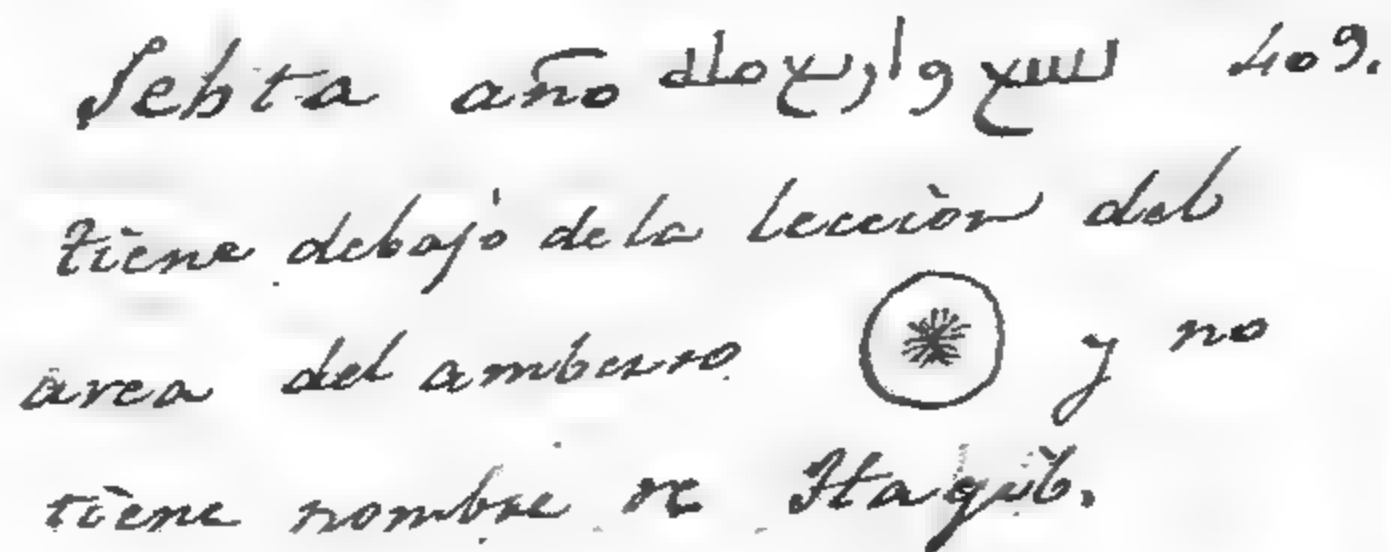 Sebta año لسع واربع مله 409.
tiene debajo de la lección del
area del amberso y no
tiene nombre de Hagib.